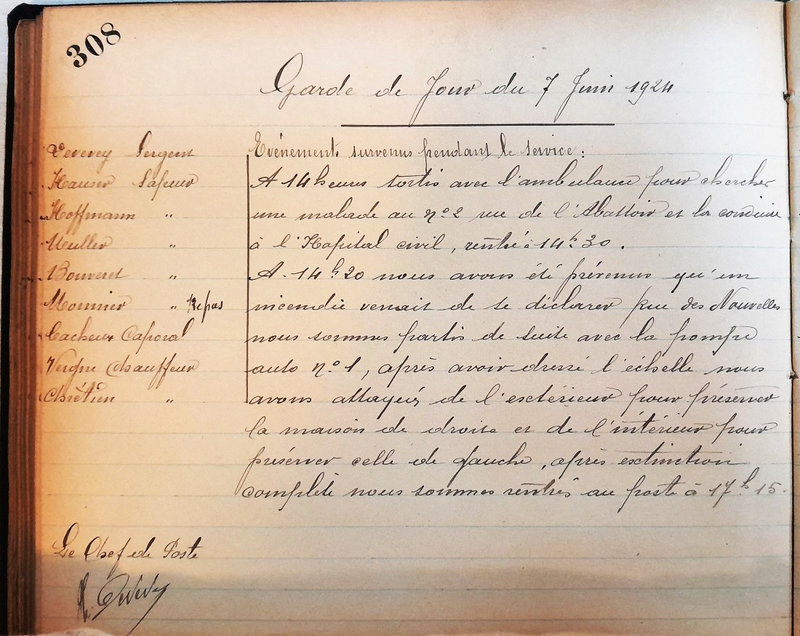 308
Garde de Jour du 7 Juin 1924
Devevey Sergent
Hauser Sapeur
Hoffmann "
Muller "
Bouveret "
Monnier " Repas
Cacheux Caporal
Vergne Chauffeur
Chrétien "
Evénements survenus pendant le service :
A 14 heures sortis avec l'ambulance pour chercher
une malade au n° 2 rue de l'Abattoir et la conduire
à l'Hopital civil, rentré à 14h30.
A 14h20 nous avons été prévenus qu'un
incendie venait de se déclarer rue des Nouvelles
nous sommes partis de suite avec la pompe
auto n° 1, après avoir dressé l'échelle nous
avons attaqués de l'extérieur pour préserver
la maison de droite et de l'intérieur pour
préserver celle de gauche, après extinction
complète nous sommes rentrés au poste à 17h15.
Le Chef de Poste